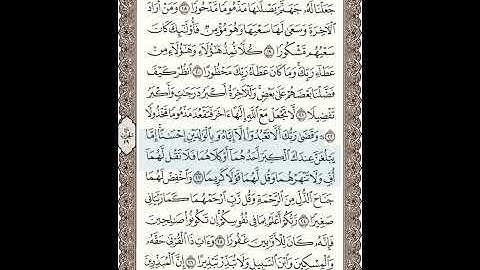 جَعَلْنَا لَهُۥ جَهَنَّمَ يَصْلَىٰهَا مَذْمُومًا مَّدْحُورًا ١٨ وَمَنْ أَرَادَ
ٱلْءَاخِرَةَ وَسَعَىٰ لَهَا سَعْيَهَا وَهُوَ مُؤْمِنٌ فَأُو۟لَٰٓئِكَ كَانَ
سَعْيُهُم مَّشْكُورًا ١٩ كُلًّا نُّمِدُّ هَٰٓؤُلَآءِ وَهَٰٓؤُلَآءِ مِنْ
عَطَآءِ رَبِّكَ وَمَا كَانَ عَطَآءُ رَبِّكَ مَحْظُورًا ٢٠ ٱنظُرْ كَيْفَ
فَضَّلْنَا بَعْضَهُمْ عَلَىٰ بَعْضٍ وَلَلْءَاخِرَةُ أَكْبَرُ دَرَجَٰتٍ وَأَكْبَرُ
تَفْضِيلًا ٢١ لَّا تَجْعَلْ مَعَ ٱللَّهِ إِلَٰهًا ءَاخَرَ فَتَقْعُدَ مَذْمُومًا مَّخْذُولًا
٢٢ ۞ وَقَضَىٰ رَبُّكَ أَلَّا تَعْبُدُوٓا۟ إِلَّآ إِيَّاهُ وَبِٱلْوَٰلِدَيْنِ إِحْسَٰنًا إِمَّا
يَبْلُغَنَّ عِندَكَ ٱلْكِبَرَ أَحَدُهُمَآ أَوْ كِلَاهُمَا فَلَا تَقُل لَّهُمَآ
أُفٍّ وَلَا تَنْهَرْهُمَا وَقُل لَّهُمَا قَوْلًا كَرِيمًا ٢٣ وَٱخْفِضْ لَهُمَا
جَنَاحَ ٱلذُّلِّ مِنَ ٱلرَّحْمَةِ وَقُل رَّبِّ ٱرْحَمْهُمَا كَمَا رَبَّيَانِى
صَغِيرًا ٢٤ رَّبُّكُمْ أَعْلَمُ بِمَا فِى نُفُوسِكُمْ إِن تَكُونُوا۟ صَٰلِحِينَ
فَإِنَّهُۥ كَانَ لِلْأَوَّٰبِينَ غَفُورًا ٢٥ وَءَاتِ ذَا ٱلْقُرْبَىٰ حَقَّهُۥ
وَٱلْمِسْكِينَ وَٱبْنَ ٱلسَّبِيلِ وَلَا تُبَذِّرْ تَبْذِيرًا ٢٦ إِنَّ ٱلْمُبَذِّرِينَ